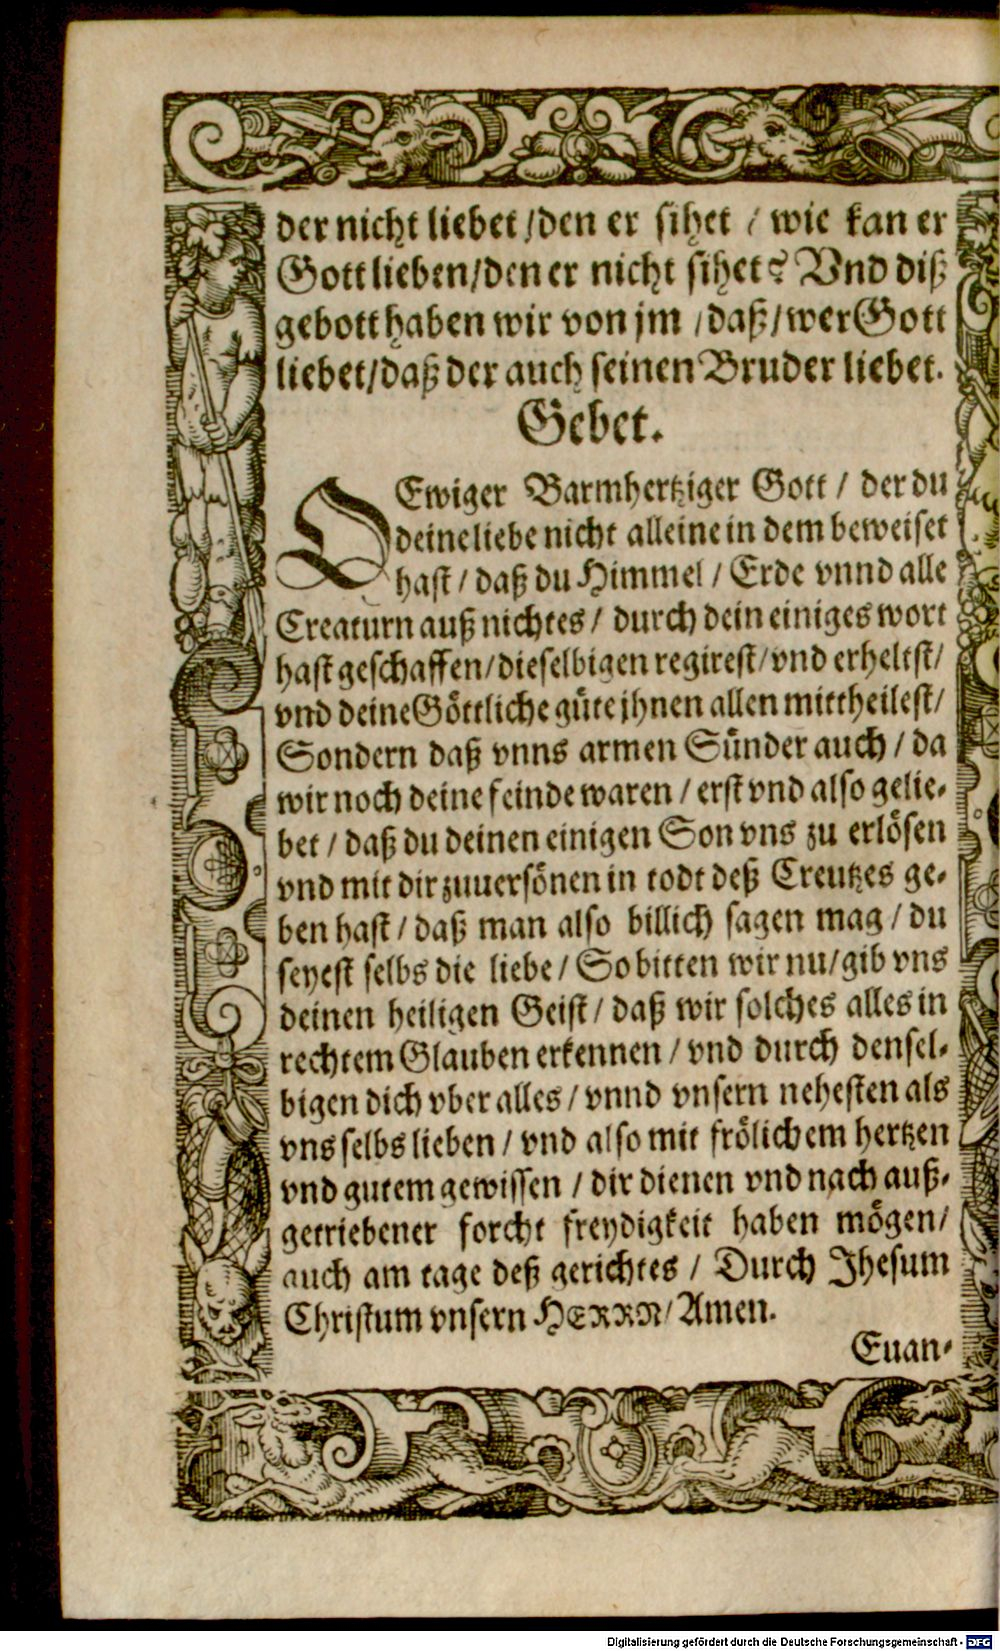 der nicht liebet / den er sihet / wie kan er
Gott lieben / den er nicht sihet? Vnd diß
gebott haben wir von jm / daß / wer Gott
liebet / daß der auch seinen Bruder liebet.
Gebet.
O Ewiger Barmhertziger Gott / der du
deine liebe nicht alleine in dem beweiset
hast / daß du Himmel / Erde vnnd alle
Creaturn auß nichtes / durch dein einiges wort
hast geschaffen / dieselbigen regirest / vnd erheltst /
vnd deine Göttliche güte jhnen allen mittheilest /
Sondern daß vnns armen Sünder auch / da
wir noch deine feinde waren / erst vnd also gelie-
bet / daß du deinen einigen Son vns zu erlösen
vnd mit dir zuuersönen in todt deß Creutzes ge-
ben hast / daß man also billich sagen mag / du
seyest selbs die liebe / So bitten wir nu / gib vns
deinen heiligen Geist / daß wir solches alles in
rechtem Glauben erkennen / vnd durch densel-
bigen dich vber alles / vnnd vnsern nehesten als
vns selbs lieben / vnd also mit frölichem hertzen
vnd gutem gewissen / dir dienen vnd nach auß-
getriebener forcht freydigkeit haben mögen /
auch am tage deß gerichtes / Durch Jhesum
Christum vnsern HERRN / Amen.
Euan-
Digitalisierung gefördert durch die Deutsche Forschungsgemeinschaft - DFG